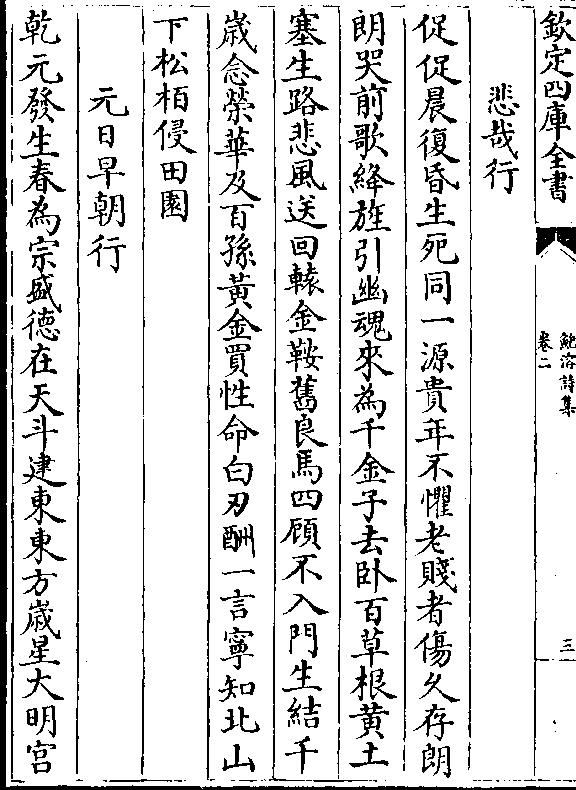 欽定四庫全書
鮑溶詩集
卷二
三
悲哉行
促促晨復昏生死同一源貴年不懼老賤者傷久存朗
朗哭前歌絳旌引幽魂來為千金子去卧百草根黄土
塞生路悲風送回轅金鞍舊良馬四顧不入門生結千
歳念榮華及百孫黃金買性命白刃酬一言寧知北山
下松柏侵田園
元日早朝行
乾元發生春為宗盛德在天斗建東東方歳星大明宮